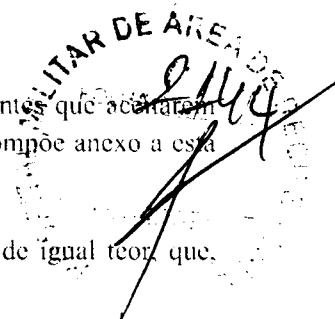 MILITAR DE ÁREA DE
2144
ntes que aceitarem
ompõe anexo a esta
de igual teor, que,